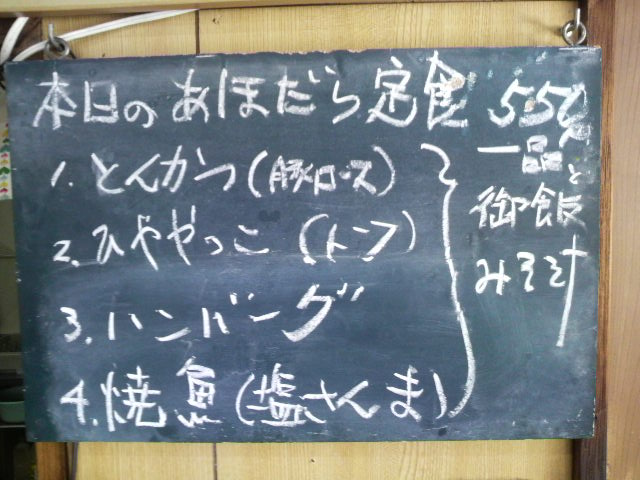 本日のあほだら定食 550
1. とんかつ(豚ロース)
2. ひややっこ (トーフ)
3. ハンバーグ
4. 焼魚(塩さんま)
一品と
御飯
みそ汁